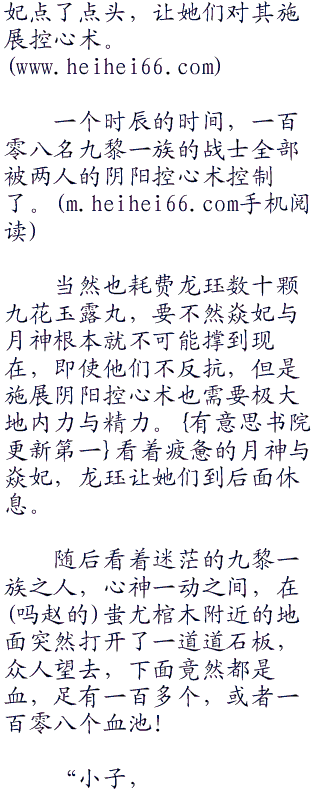 妃点了点头，让她们对其施
展控心术。
(www.heihei66.com)
一个时辰的时间，一百
零八名九黎一族的战士全部
被两人的阴阳控心术控制
了。(m.heihei66.com手机阅
读)
当然也耗费龙珏数十颗
九花玉露丸，要不然焱妃与
月神根本就不可能撑到现
在，即使他们不反抗，但是
施展阴阳控心术也需要极大
地内力与精力。{有意思书院
更新第一}看着疲惫的月神与
焱妃，龙珏让她们到后面休
息。
随后看着迷茫的九黎一
族之人，心神一动之间，在
(吗赵的)蚩尤棺木附近的地
面突然打开了一道道石板，
众人望去，下面竟然都是
血，足有一百多个，或者一
百零八个血池！
“小子，